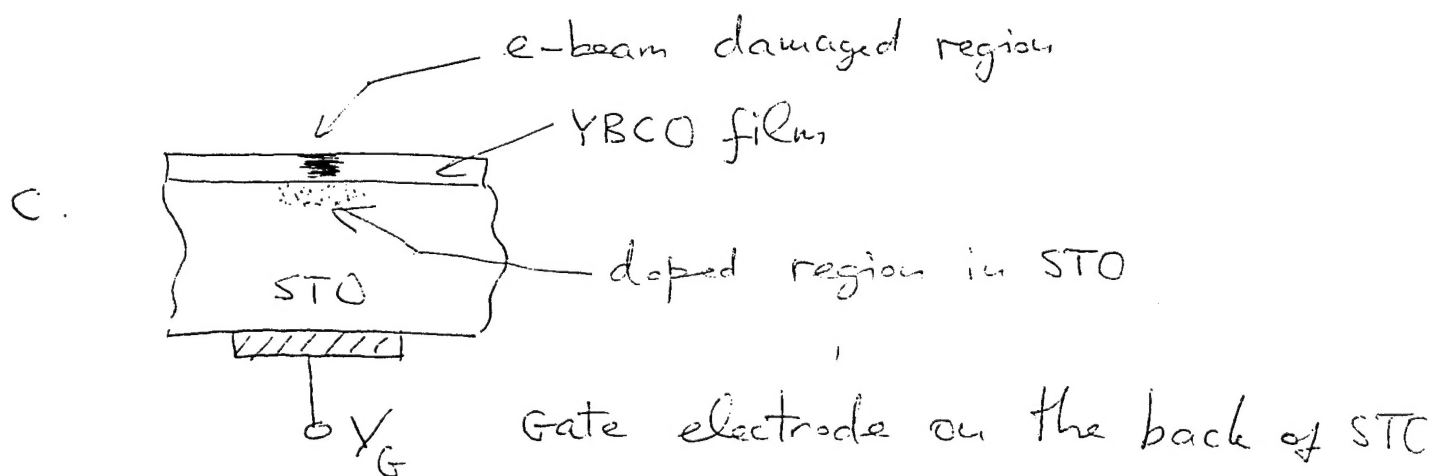 e-beam damaged region
YBCO film
C.
doped region in STO
STO
V_G Gate electrode on the back of STO